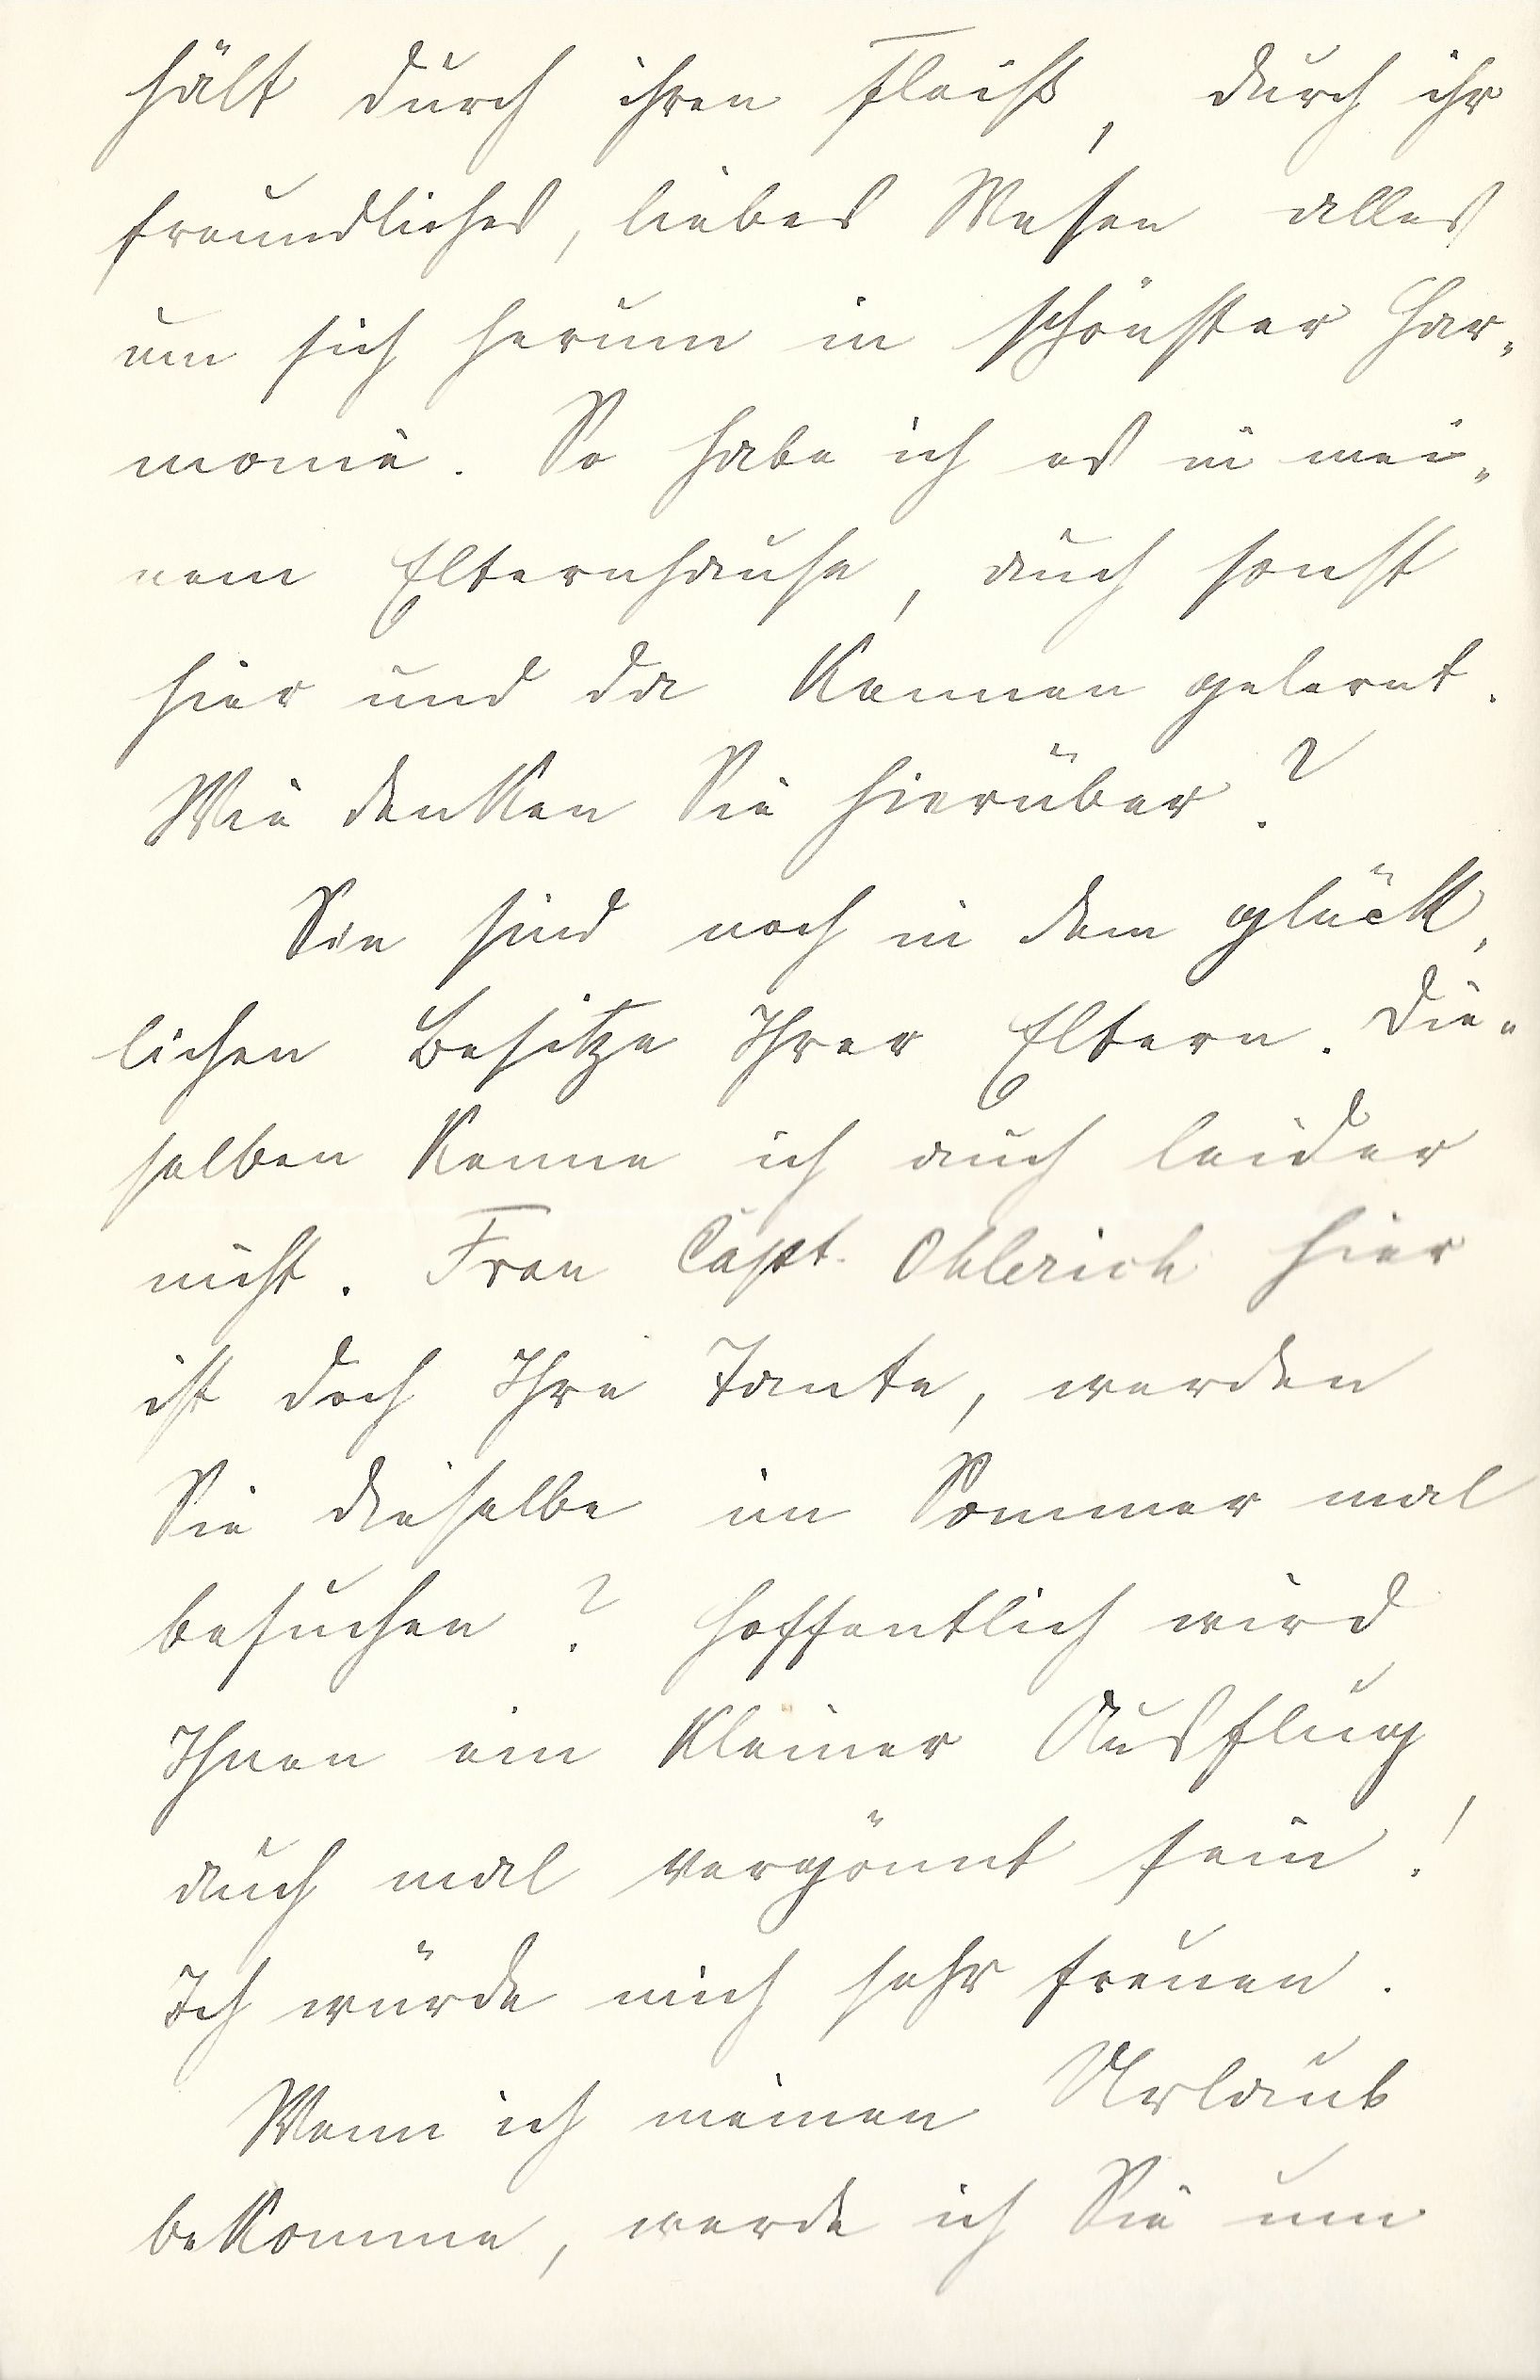 hält durch ihren Fleiß, durch ihr
freundliches, liebes Wesen alles
um sich herum in schönster Har-
monie. So habe ich es in mei-
nem Elternhause, auch sonst
hier und da kennen gelernt.
Wie denken Sie hierüber?
Sie sind noch in dem glück-
lichen Besitze Ihrer Eltern. Die-
selben kenne ich auch leider
nicht. Frau Capt. Ohlerich hier
ist doch Ihre Tante, werden
Sie dieselbe im Sommer mal
besuchen? Hoffentlich wird
Ihnen ein kleiner Ausflug
auch mal vergönnt sein!
Ich würde mich sehr freuen.
Wenn ich meinen Urlaub
bekomme, werde ich Sie um